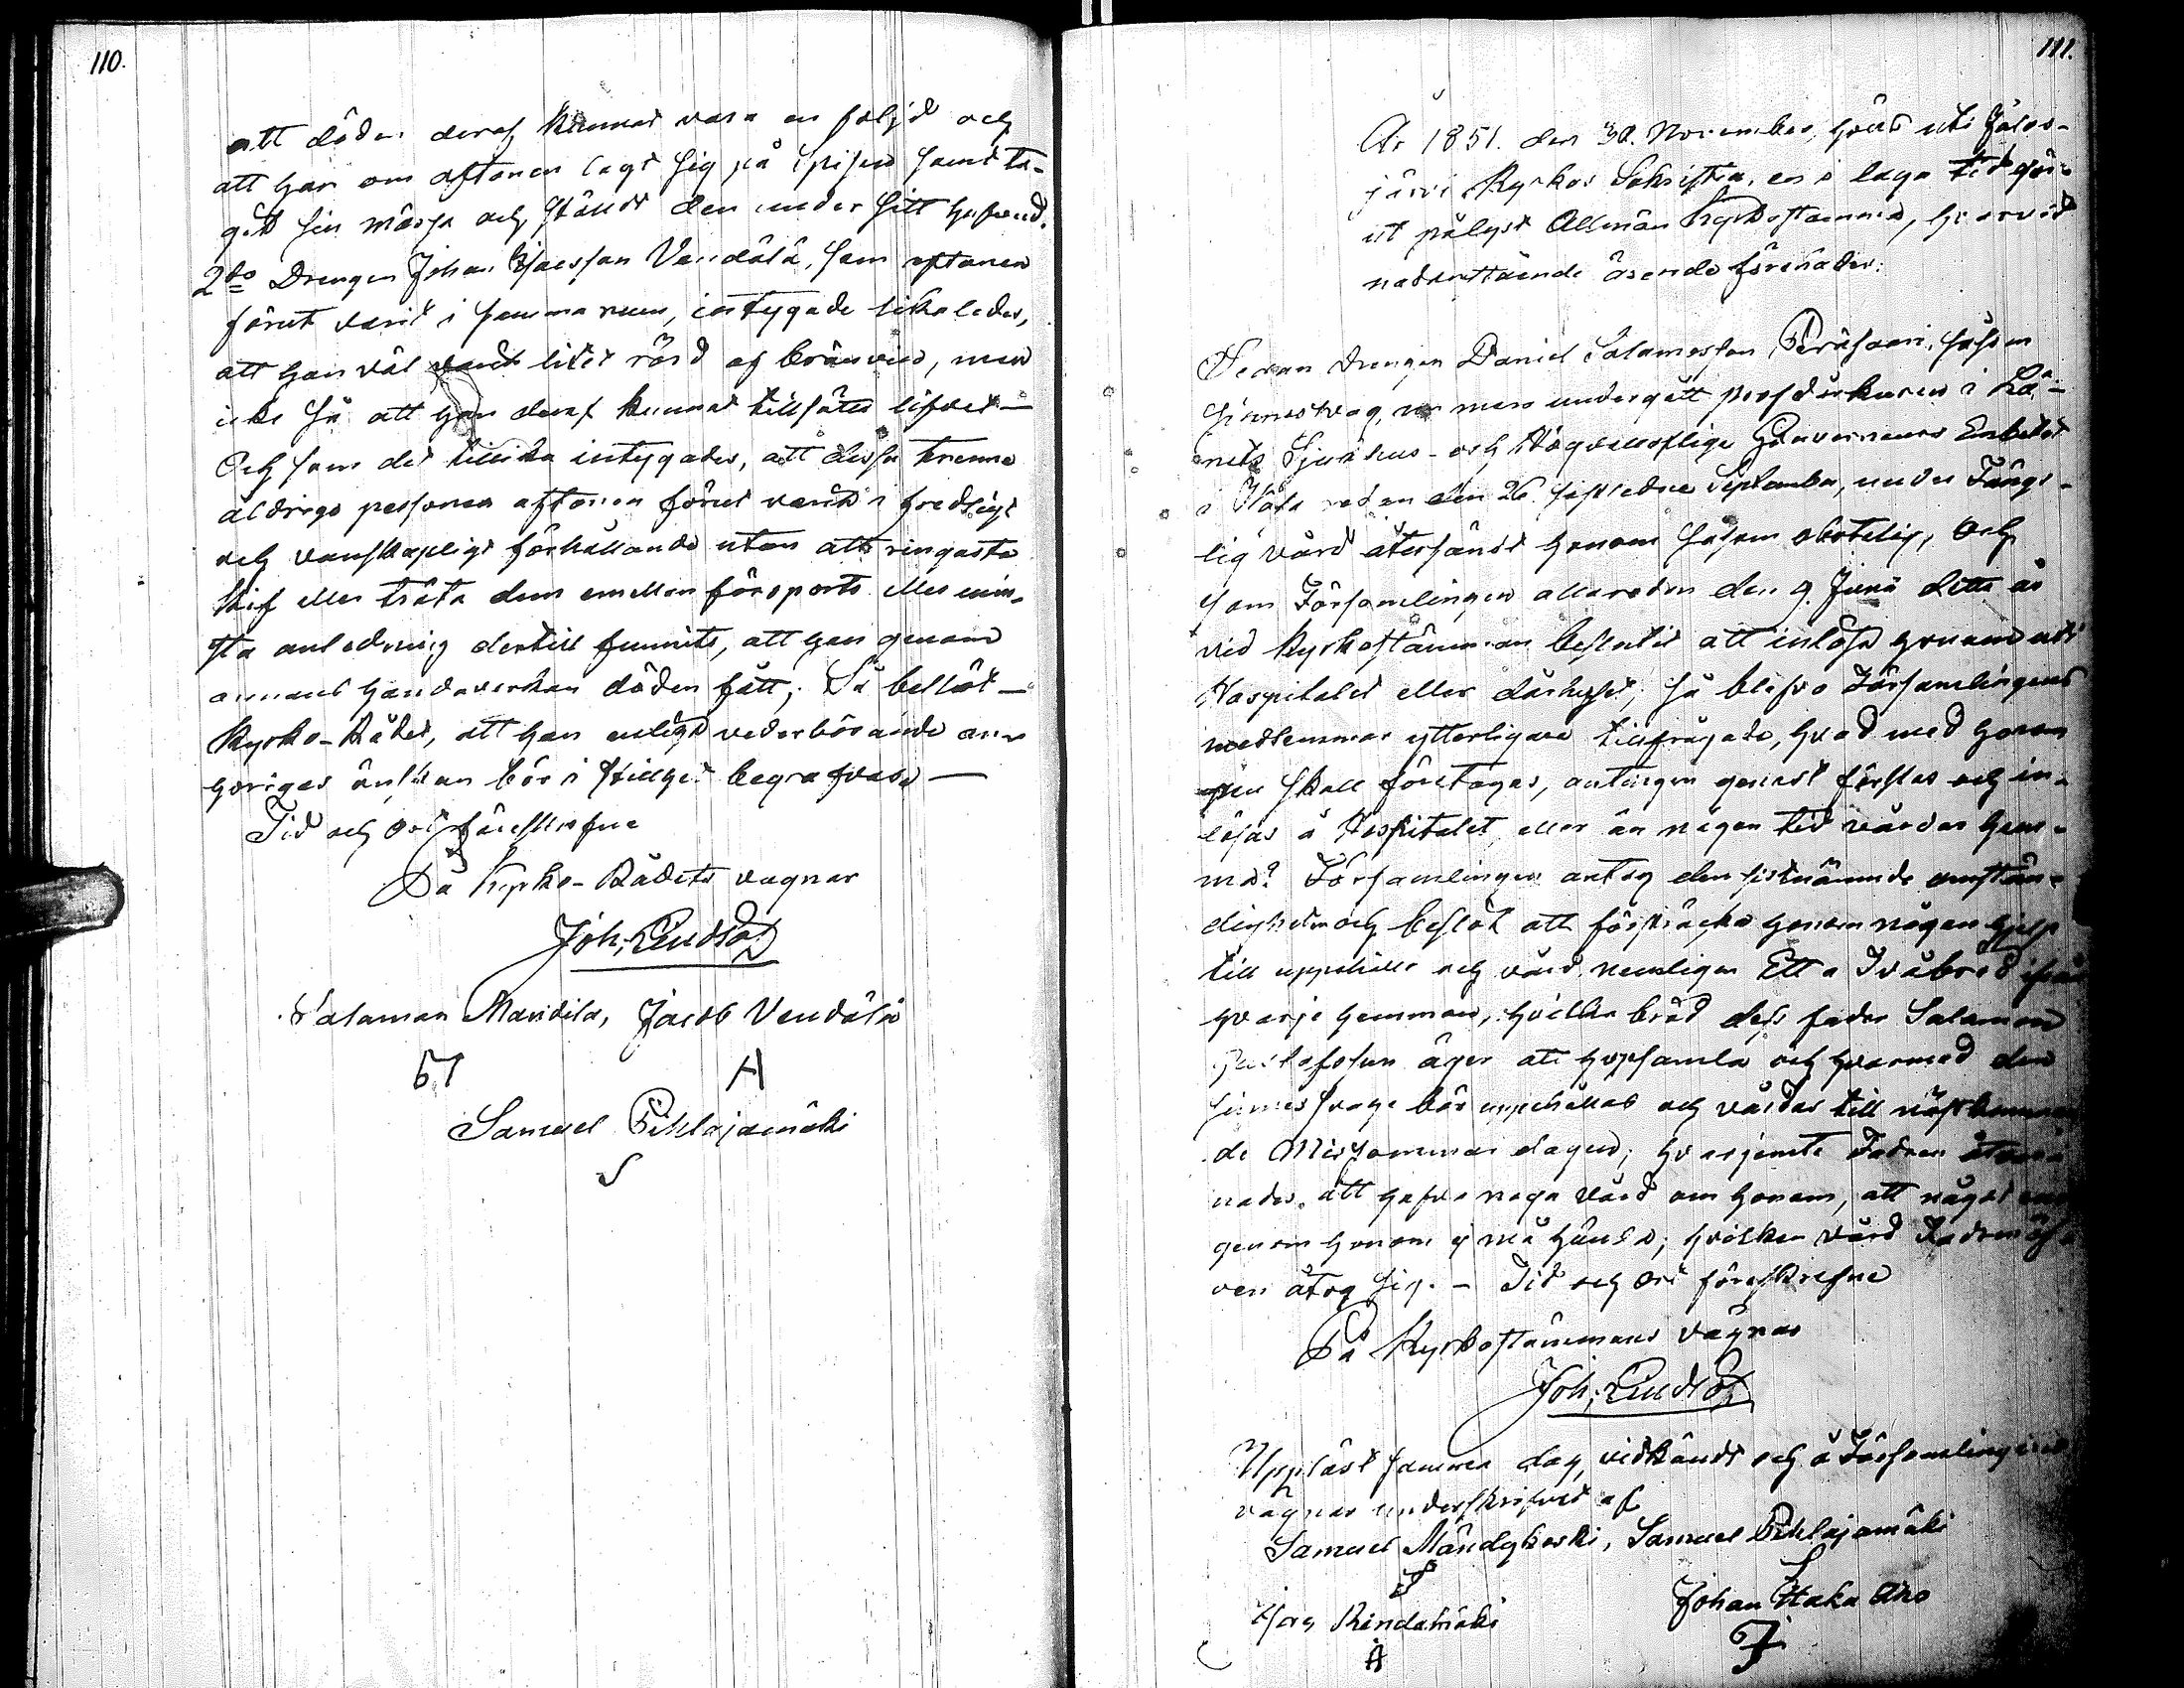 110.
att döden deraf kunnat vara en följd och
att han om aftonen lagt sig på spisen samt ta-
git sin mössa och ställt den under sitt hufvud.
2do Drengen Johan Isacsson Vendälä, som aftonen
förut varit i samma rum, intygade likaledes,
att han väl varit litet rörd af bränvin, men
icke så att han deraf kunnat tillsätta lifvet —
Och som det tillika intygades, att dessa trenne
åldriga personer aftonen förut varit i fredligt
och vänskapligt förhållande utan att ringaste
kif eller träta dem emellan försports eller min-
sta anledning dertill funnits, att han genom
annans handaverkan döden fått; Så beslöt —
Kyrko-Rådet, att han enligt vederbörande an-
horigas önskan bör i stillhet begrafvas —
Tid och Ort föreskrefne
På Kyrko-Rådets vägnar
Joh: Lindstd
Salamon Mandila, Jacob Vendälä
Samuel Pihlajamäki
S
111.
År 1851. den 30. November, hölts uti Jalas-
järvi Kyrkas Sakristia, en i laga tid för-
ut pålyst Allmän Kyrkostämma, hvarvid
nedanstående ärende förehades:
Sedan drengen Daniel Salamosson Peräsaari, såsom
sinnessvag, nu mera undergått prof därkuren i Lä-
nets Sjukhus- och Högvälloflige Gouverneurs Embetet
i Wasa redan den 26. sistledne September, under Fångs-
lig vård återsändt honom såsom obotelig, och
som Församlingen allaredan den 9. Junii detta år
vid Kyrkostämman beslutit att inlösa honom uti
Hospitalet eller dårhuset; så blefvo Församlingens
medlemmar ytterligare tillfrågade, hvad med honom
nu skall företagas, antingen genast förslas och in-
lösas å Hospitalet, eller än någon tid vårdas hem-
ma? Församlingen antog den sistnämnde omstän-
digheten och beslöt att försträcka honom någon hjelp
till uppehälle och vård, nemligen Ett a Två bröd ifrån
hvarje hemman, hvilka bröd dess fader Salamon
Gustafsson äger att hopsamla och hvarmed den
sinnessvage bör uppehållas och vårdas till nästkomman
de Midsommar dagen; hvarjemte Fadren
nades, att hafva noga vård om honom, att något
genom honom ej må hända; hvilken vård Fadren äf
ven åtog sig. — Tid och Ort föreskrefne
På Kyrkostämmans vägnar
Joh: Lindstd
Uppläst samma dag, vidkändt och å Församlingens
vägnar underskrifvet af
Samuel Mändykoski, Samuel Pihlajamäki
S
Isac Rindamäki Johan Haka Aho
J